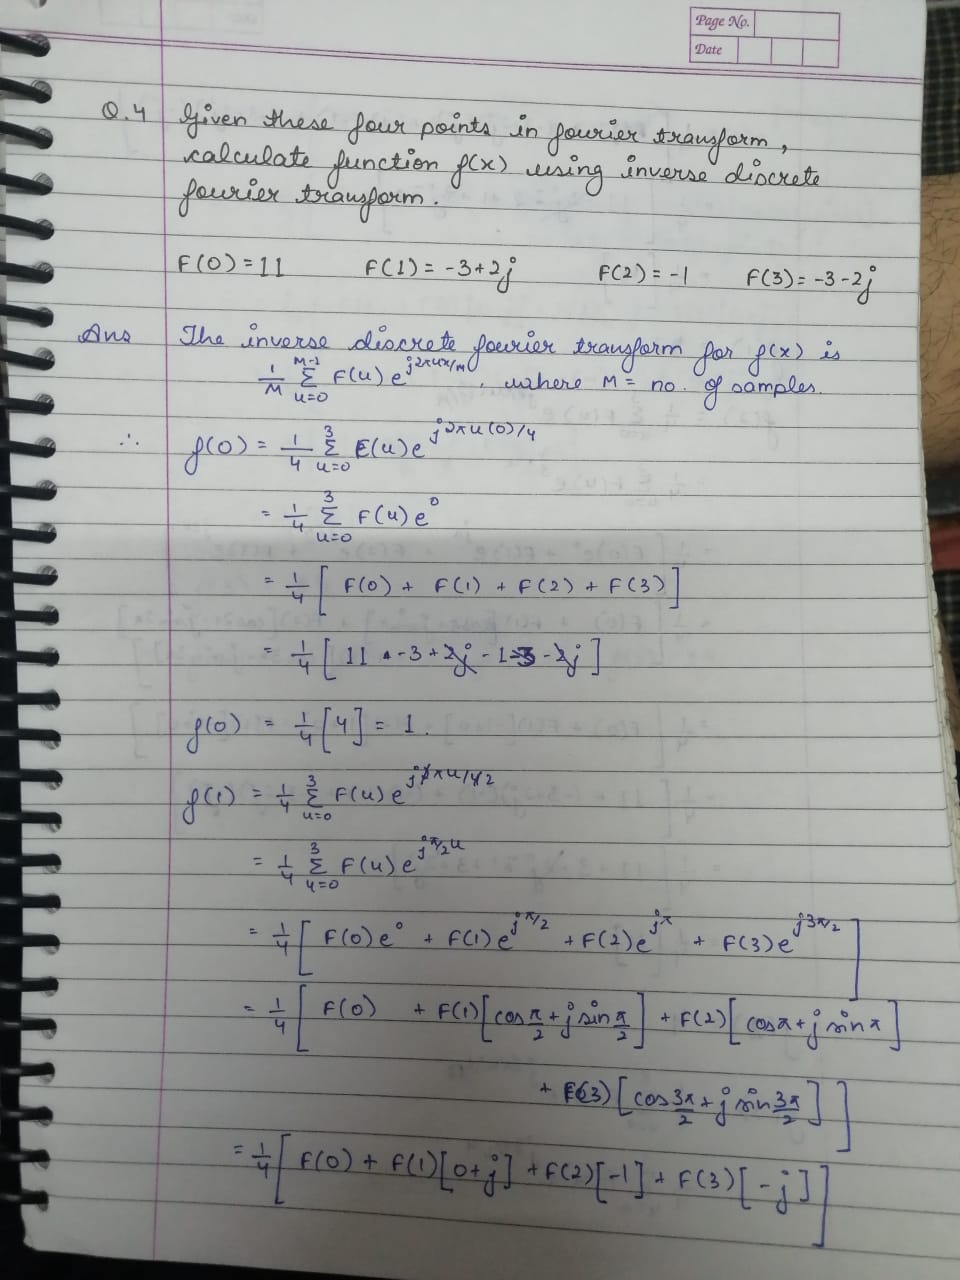 Page No.
Date
Q.4 Given these four points in fourier transform,
calculate function f(x) using inverse discrete
fourier transform.
F(0) = 11 F(1) = -3+2j F(2) = -1 F(3) = -3-2j
Ans The inverse discrete fourier transform for f(x) is
1/M Σ_{u=0}^{M-1} F(u) e^{j2πux/M}, where M = no. of samples.
∴ f(0) = 1/4 Σ_{u=0}^{3} F(u) e^{j2πu(0)/4}
= 1/4 Σ_{u=0}^{3} F(u) e^0
= 1/4 [ F(0) + F(1) + F(2) + F(3) ]
= 1/4 [ 11 + -3 + 2j - 1 -3 - 2j ]
f(0) = 1/4 [4] = 1.
f(1) = 1/4 Σ_{u=0}^{3} F(u) e^{j2πu/4 2}
= 1/4 Σ_{u=0}^{3} F(u) e^{jπ/2 u}
= 1/4 [ F(0)e^0 + F(1)e^{jπ/2} + F(2)e^{jπ} + F(3)e^{j3π/2} ]
= 1/4 [ F(0) + F(1) [cos π/2 + j sin π/2] + F(2) [cos π + j sin π]
+ F(3) [cos 3π/2 + j sin 3π/2] ]
= 1/4 [ F(0) + F(1) [0+j] + F(2) [-1] + F(3) [-j] ]